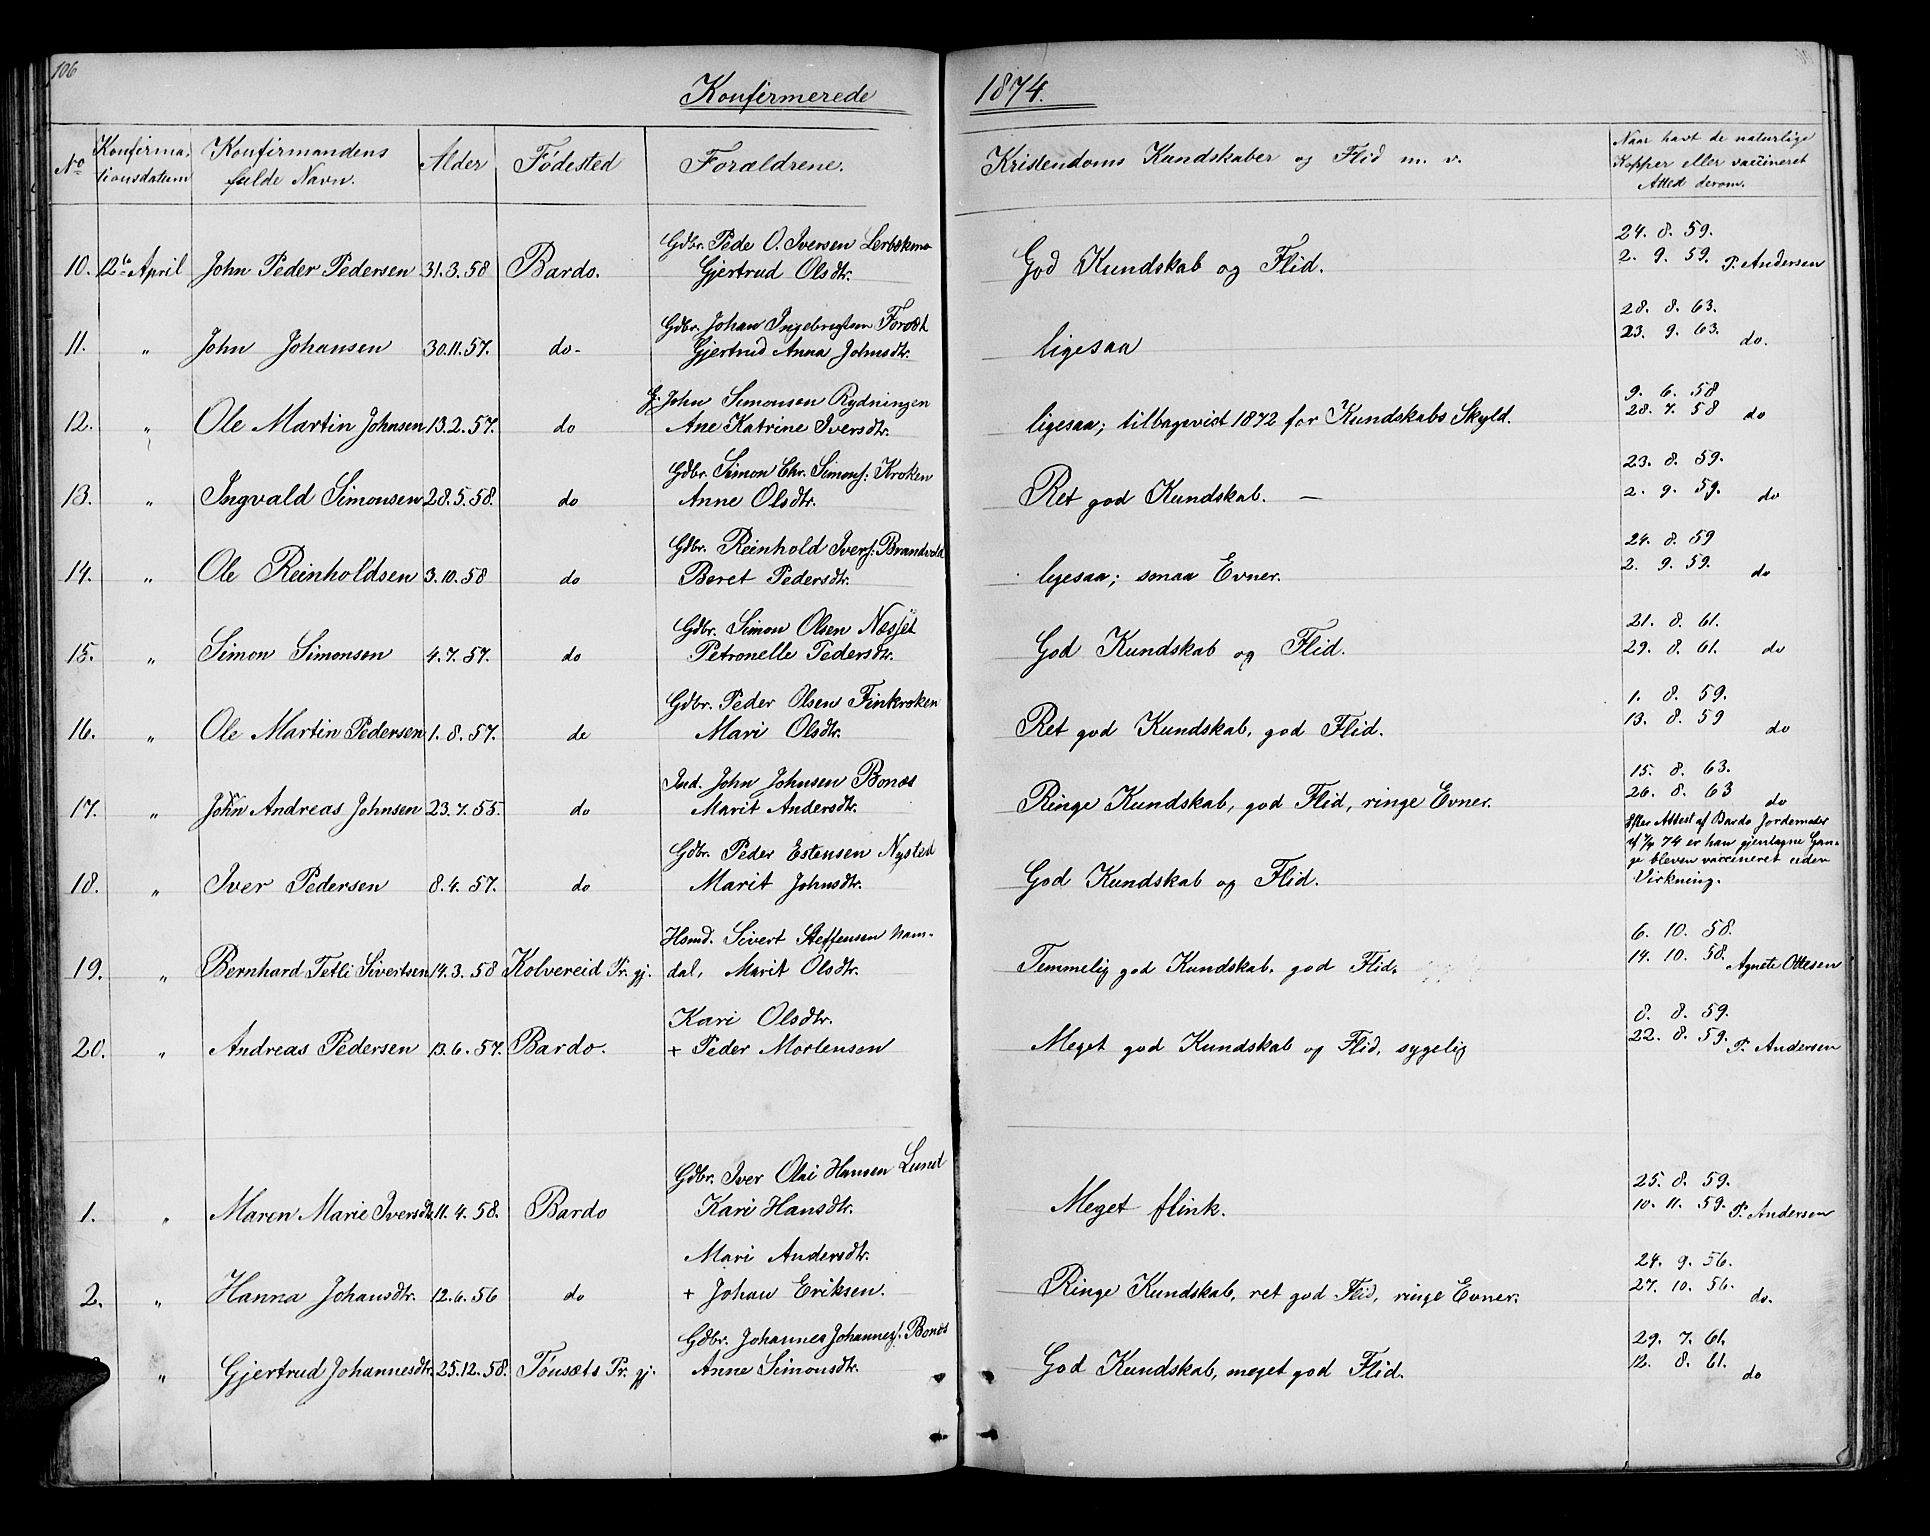 106
Konfirmerede 1874.
No Konfirmationsdatum Konfirmandens fulde Navn. Alder Fødested Forældrene. Kristendoms Kundskaber og Flid m. v. Naar havt de naturlige Kopper eller vaccineret Attest derom.
Gdbr. Peder O. Iversen 24. 8. 59.
10. 12te April John Peder Pedersen 31.3.58 Bardo. Gjertrud Olsdtr. God Kundskab og Flid. 2. 9. 59. P. Andersen
Gdbr. Johan Ingebrigtsen Foræt 28. 8. 63.
11. " John Johansen 30.11.57. do- Gjertrud Anna Johnsdtr. ligesaa 23. 9. 63. do.
G. John Simonsen Rydningen 9. 6. 58
12. " Ole Martin Johnsen 13.2.57. do Ane Katrine Iversdtr. ligesaa; tilbagevist 1872 for Kundskabs Skyld. 28. 7. 58 do
Gdbr. Simon Chr. Simons: Kroken 23. 8. 59.
13. " Ingvald Simonsen 28.5.58. do Anne Olsdtr. Ret god Kundskab. — 2. 9. 59. do
Gdbr. Reinhold Ivers: Brandvold 24. 8. 59
14. " Ole Reinholdsen 3.10.58 do Beret Pedersdtr. ligesaa; smaa Evner. 2. 9. 59. do
Gdbr. Simon Olsen Næsset 21. 8. 61.
15. " Simon Simonsen 4.7.57. do Petronelle Pedersdtr. God Kundskab og Flid. 29. 8. 61. do
Gdbr. Peder Olsen Finkroken 1. 8. 59.
16. " Ole Martin Pedersen 1.8.57. do Mari Olsdtr. Ret god Kundskab, god Flid. 13. 8. 59 do
Ind. John Johnsen Bonæs 15. 8. 63.
17. " John Andreas Johnsen 23.7.55. do Marit Andersdtr. Ringe Kundskab, god Flid, ringe Evner. 26. 8. 63 do
Gdbr. Peder Estensen Nysted Efter Attest af Bardo Jordemoder
af 74 er han gjentagne Gan-
ge bleven vaccineret uden
18. " Iver Pedersen 8.4.57. do Marit Johnsdtr. God Kundskab og Flid. Virkning.
Hsmd. Sivert Steffensen Nam- 6. 10. 58.
19. " Bernhard Tetli Sivertsen 14.3.58 Kolvereid Pr. gj. dal, Marit Olsdtr. Temmelig god Kundskab. god Flid. 14. 10. 58. Agnete Ottesen
Kari Olsdtr. 8. 8. 59.
20. " Andreas Pedersen 13.6.57. Bardo. + Peder Mortensen Meget god Kundskab og Flid, sygelig 22. 8. 59. P. Andersen
Gdbr. Iver Olai Hansen Lund 25. 8. 59.
1. " Maren Marie Iversdtr. 11.4.58. Bardo Kari Hansdtr. Meget flink. 10. 11. 59. P. Andersen
Mari Andersdtr. 24. 9. 56.
2. " Hanna Johansdtr. 12.6.56 do + Johan Eriksen. Ringe Kundskab, ret god Flid, ringe Evner. 27. 10. 56. do.
Gdbr. Johannes Johannes: Bonæs 29. 7. 61.
" Gjertrud Johannesdtr. 25.12.58. Tønsæts Pr. gj. Anne Simonsdtr. God Kundskab, meget god Flid. 12. 8. 61. do